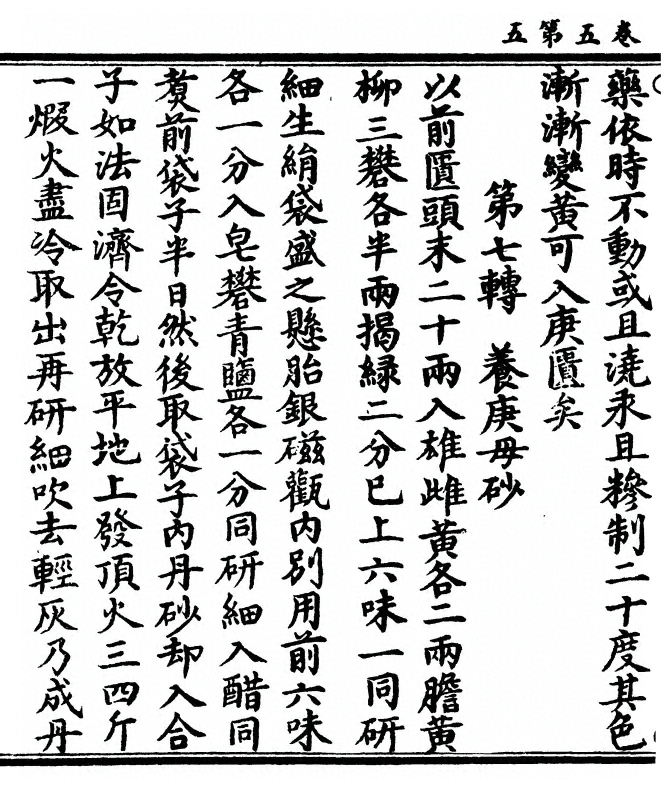 五第五卷
藥依時不動或且澆汞且糝制二十度其色
漸漸變黃可入庚匱矣
第七轉　養庚母砂
以前匱頭末二十兩入雄雌黃各二兩膽黃
柳三礬各半兩揭綠二分已上六味一同研
細生絹袋盛之懸胎銀磁觀內別用前六味
各一分入皂礬青鹽各一分同研細入醋同
煑前袋子半日然後取袋子內丹砂却入合
子如法固濟令乾放平地上發頂火三四斤
一煅火盡冷取出再研細吹去輕灰乃成丹